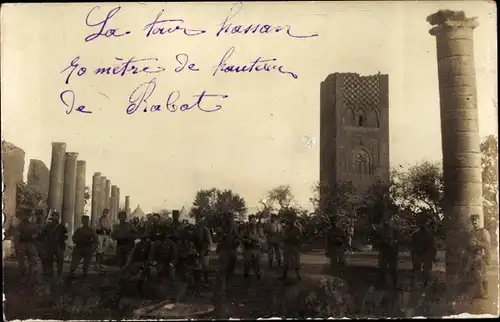 La tour hassan
70 mètre de hauteur
de Rabat